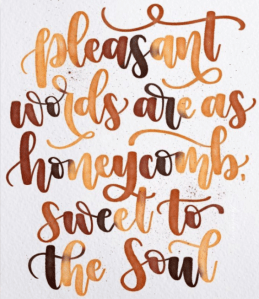 pleasant
words are as
honeycomb,
sweet to
the soul